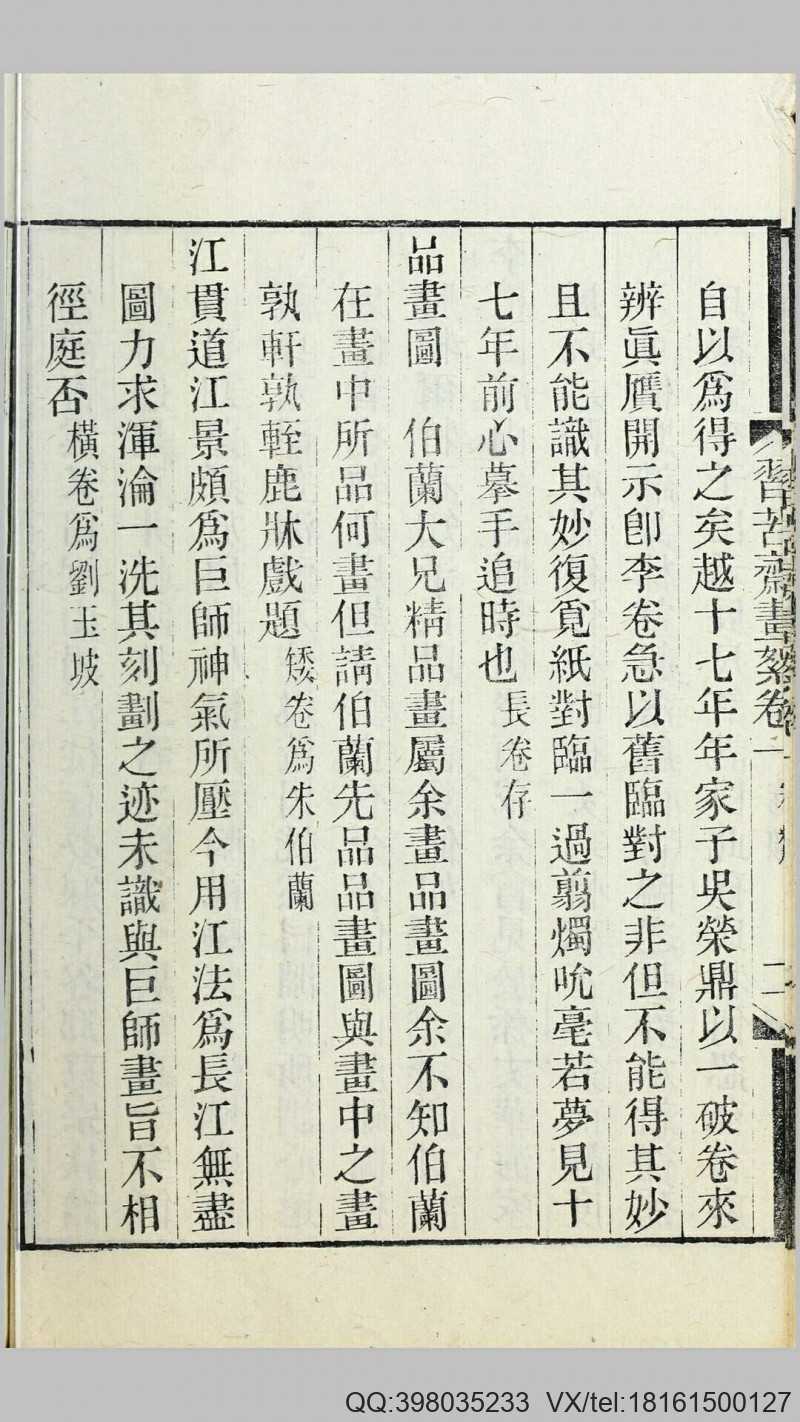 習苦齋畫絮卷一
二
自以爲得之矣越十七年年家子吳榮鼎以一破卷來
辨眞贋開示卽李卷急以舊臨對之非但不能得其妙
且不能識其妙復覓紙對臨一過翦燭吮毫若夢見十
七年前心摹手追時也長卷存
品畫圖 伯蘭大兄精品畫屬余畫品畫圖余不知伯蘭
在畫中所品何畫但請伯蘭先品品畫圖與畫中之畫
孰軒孰輊鹿牀戲題矮卷爲朱伯蘭
江貫道江景頗爲巨師神氣所壓今用江法爲長江無盡
圖力求渾淪一洗其刻劃之迹未識與巨師畫旨不相
徑庭否橫卷爲劉玉坡
QQ:398035233 VX/tel:18161500127